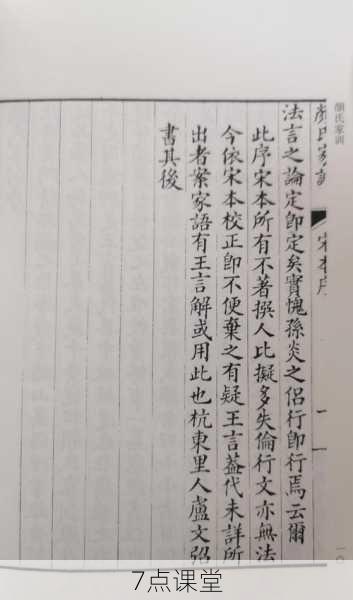 顏氏家訓
顏氏家訓 宋本序 一
法言之論定卽定矣實愧孫炎之侶行卽行焉云爾
此序宋本所有不著撰人比擬多失倫行文亦無法
今依宋本校正卽不便棄之有疑王言葢代未詳所
出者案家語有王言解或用此也杭東里人盧文弨
書其後
一〇
7点课堂